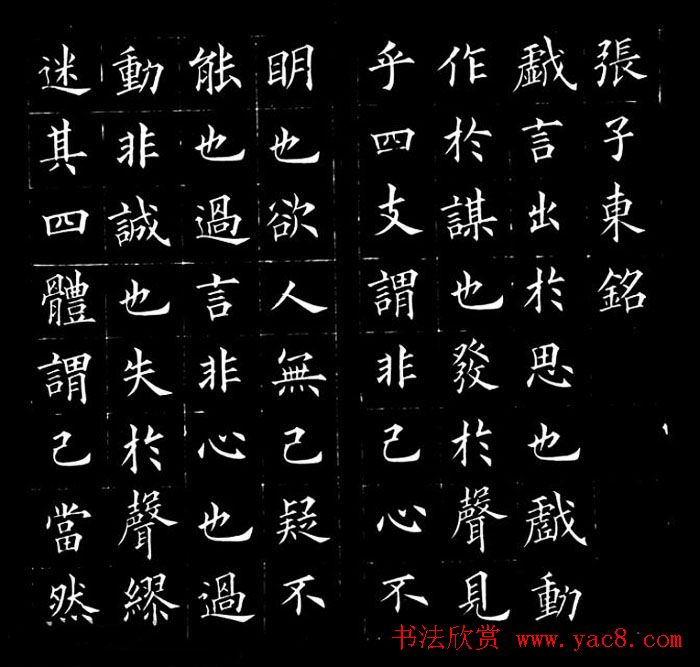 張子東銘
戲言出於思也戲動
作於謀也發於聲見
乎四支謂非己心不
明也欲人無己疑不
能也過言非心也過
動非誠也失於聲繆
迷其四體謂己當然
书法欣赏 www.yac8.com